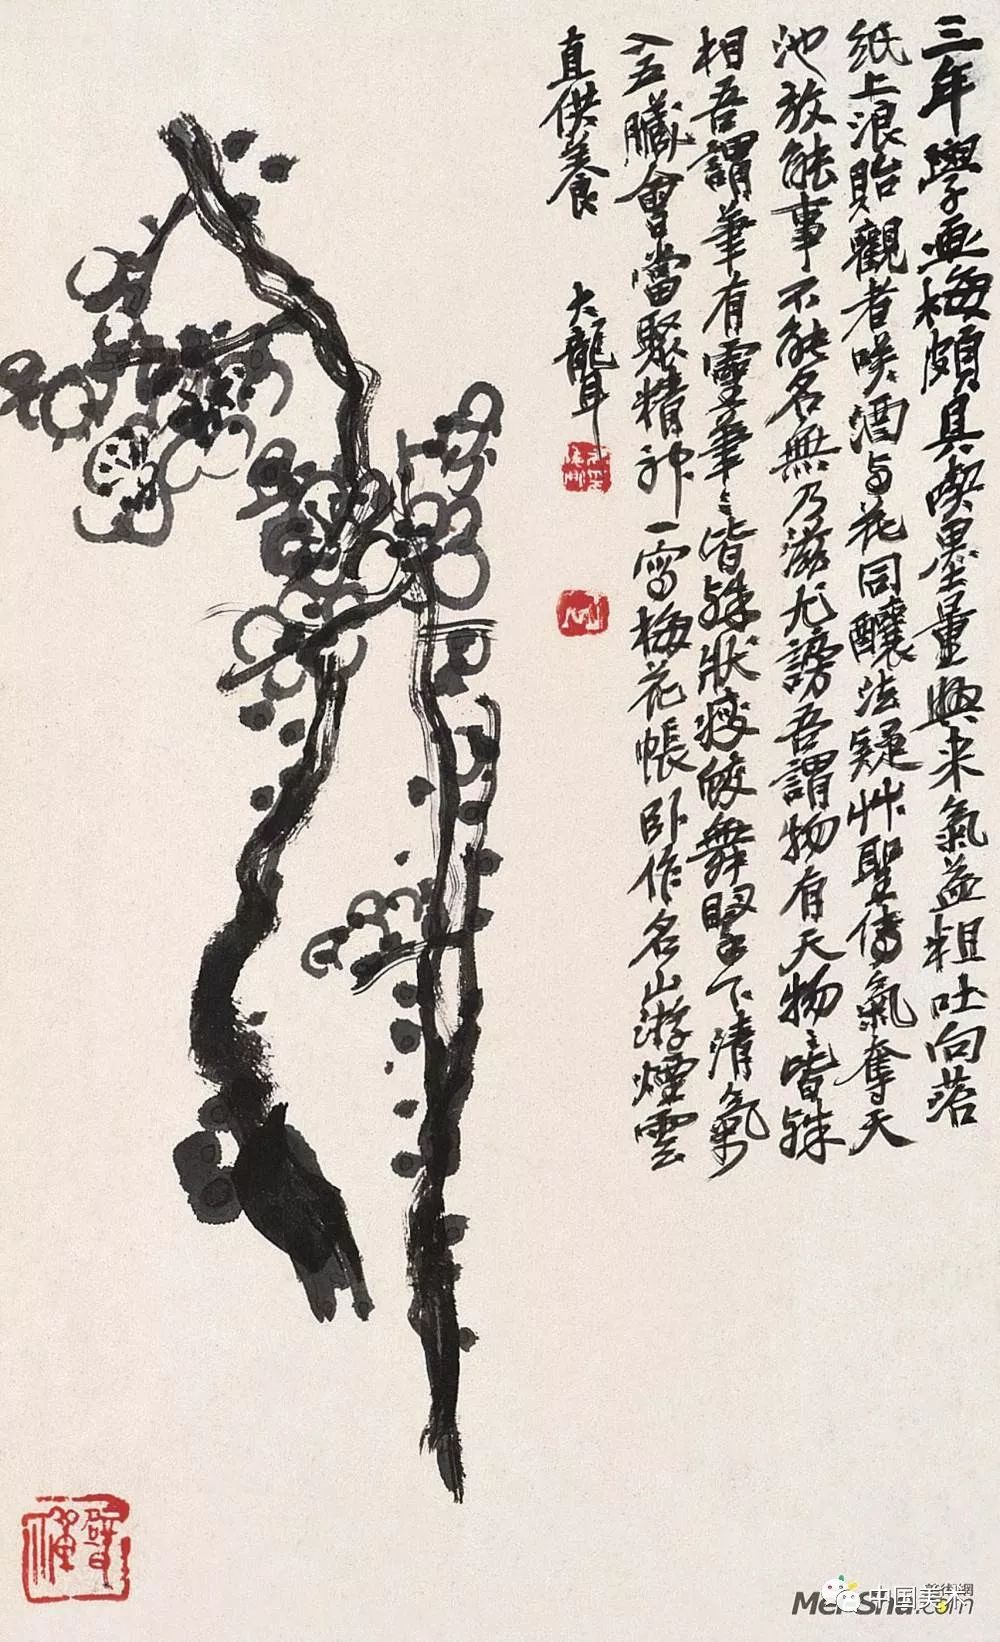 三年學画梅頗具喫墨量興来氣益粗吐向落
紙上浪貽觀者咲酒与花同釀法疑艸聖傳氣奪天
池放能事不能名無乃滋尤謗吾謂物有天物〻皆殊
相吾謂筆有靈筆〻皆殊狀瘦蛟舞腕下清氣
入五臟會當聚精神一寫梅花帳卧作名山游煙雲
直供養
大聾
中国美术
美術網
MeiShu.com